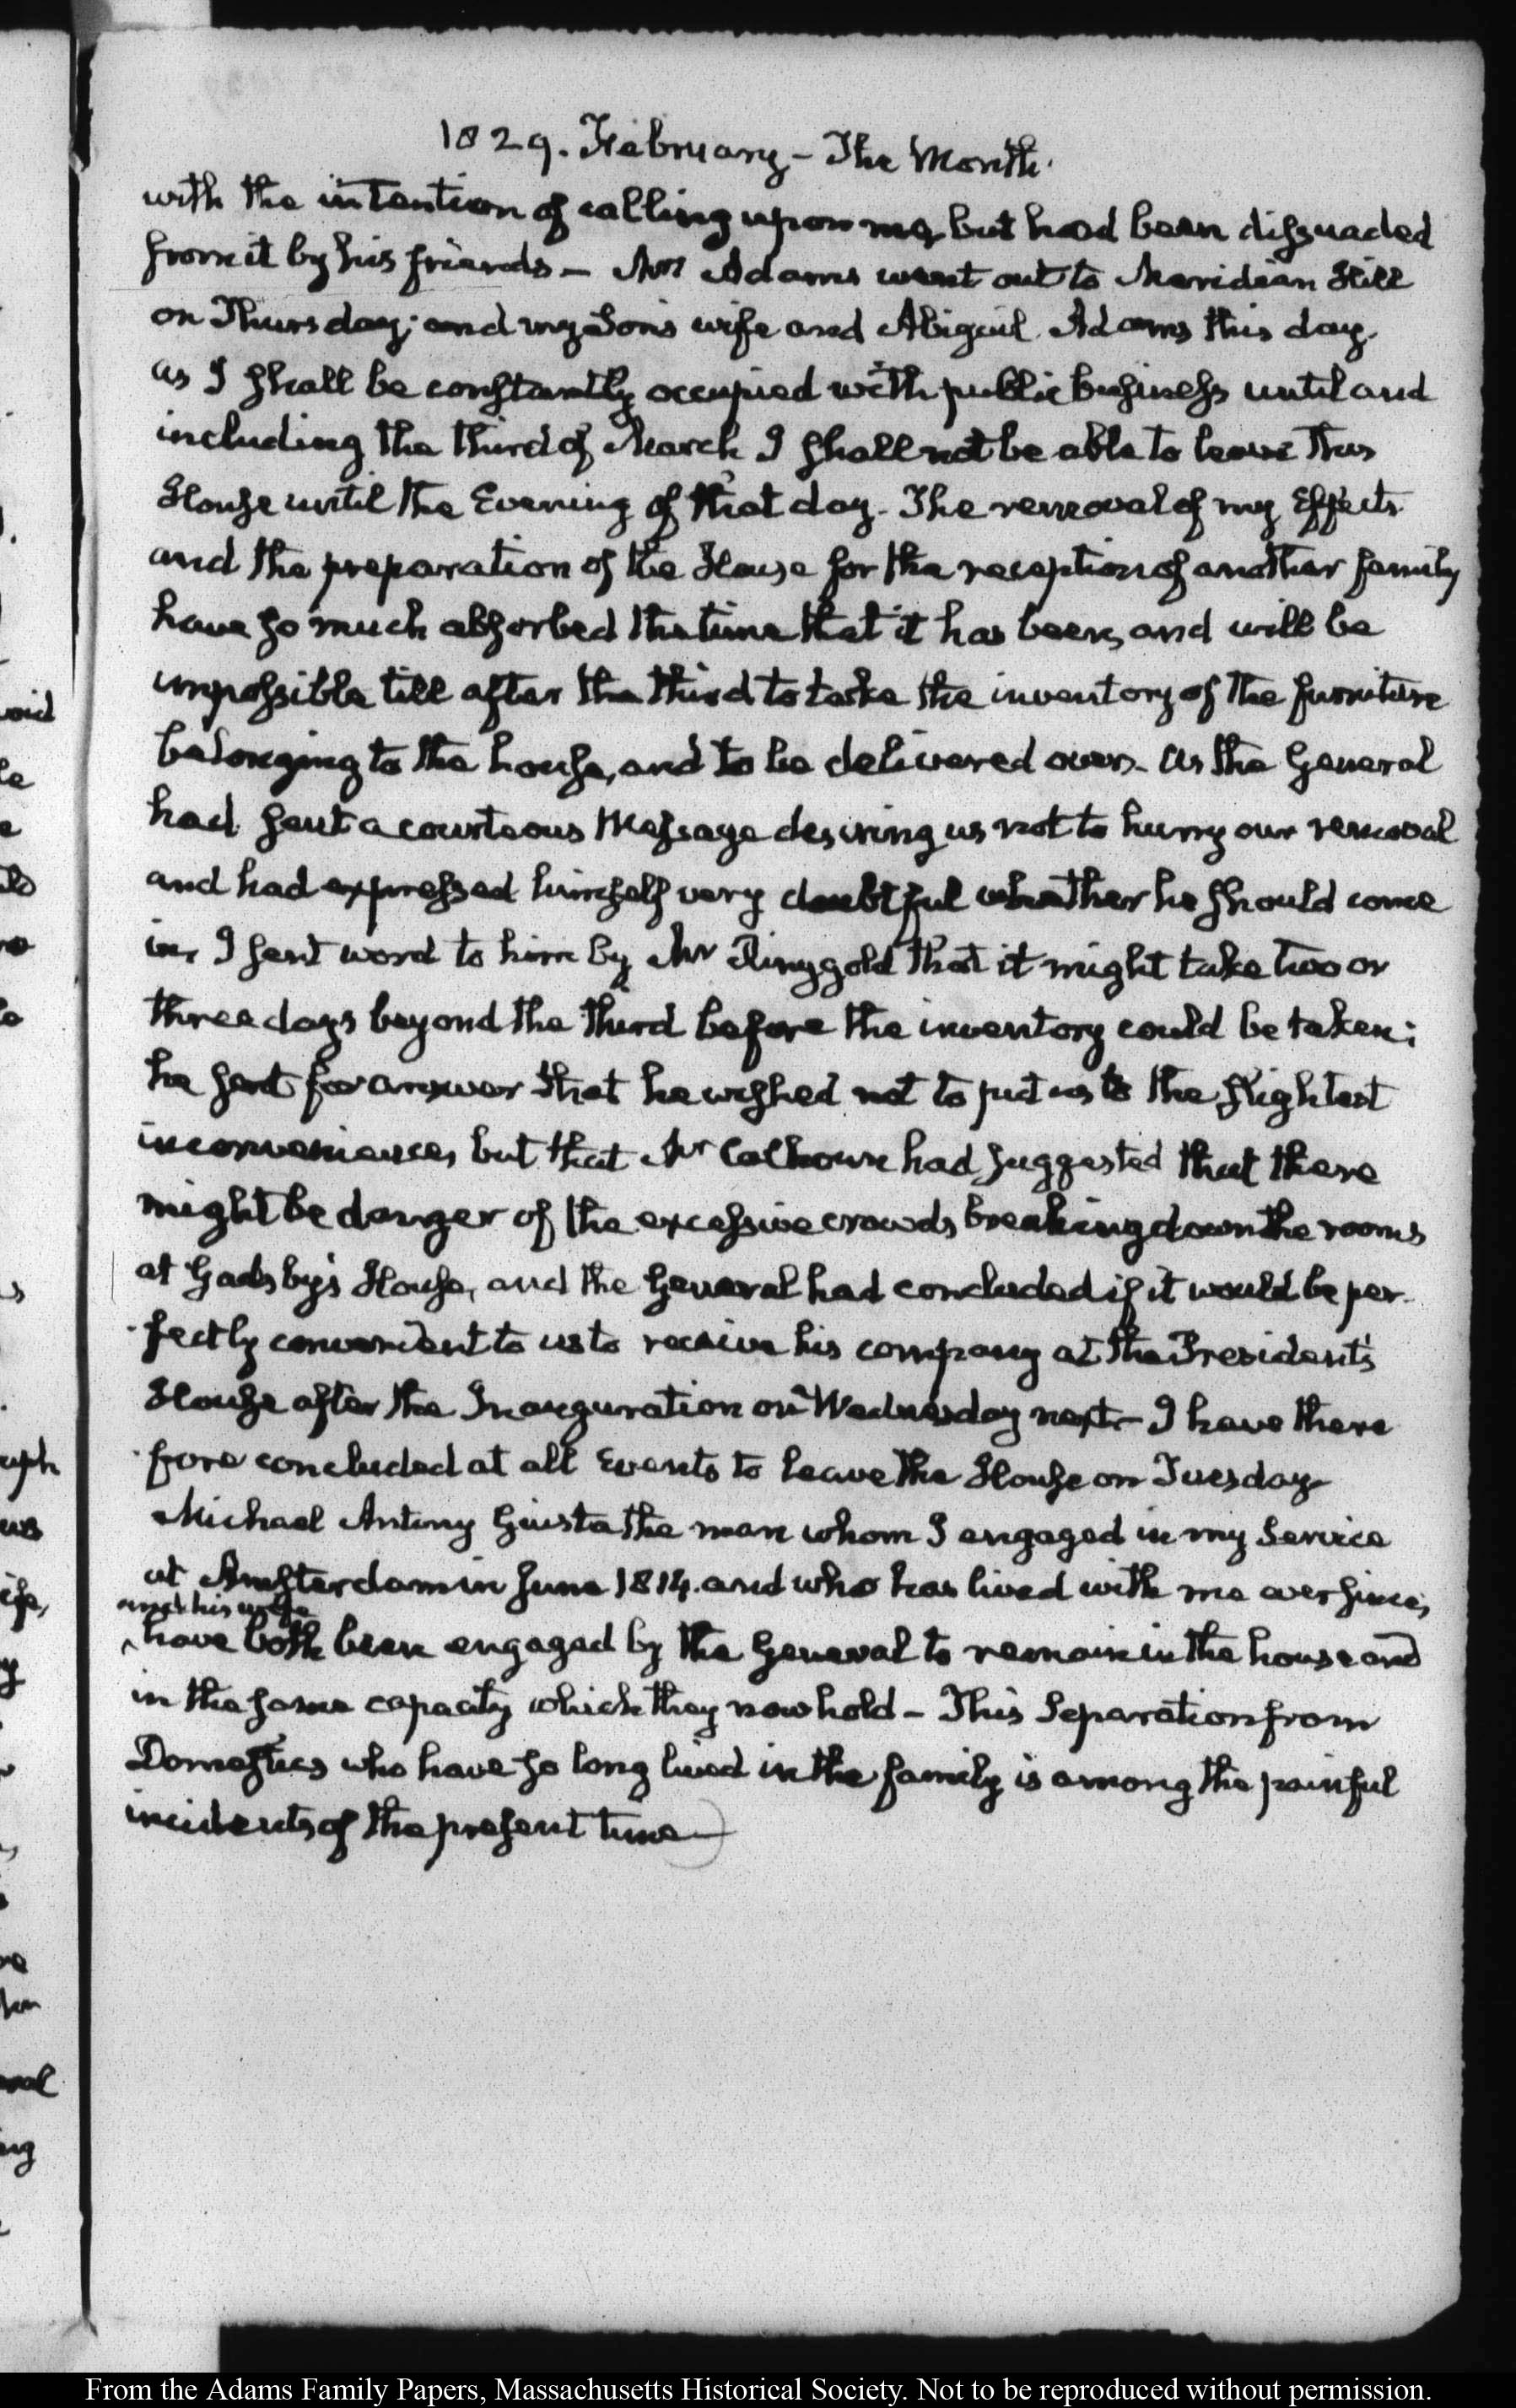 1829. February – The Month.
with the intention of calling upon me, but had been dissuaded
from it by his friends – Mrs Adams went out to Meridian Hill
on Thursday; and my Son's wife and Abigail Adams this day.
as I shall be constantly occupied with public business until and
including the third of March I shall not be able to leave this
House until the Evening of that day. The removal of my Effects
and the preparation of the House for the reception of another family
have so much absorbed the time that it has been, and will be
impossible till after the third to take the inventory of the furniture
belonging to the house, and to be delivered over. As the General
had sent a courteous Message desiring us not to hurry our removal
and had expressed himself very doubtful whether he should come
in, I sent word to him by Mr Ringgold that it might take two or
three days beyond the third before the inventory could be taken;
he sent for answer that he wished not to put us to the slightest
inconvenience, but that Mr Calhoun had suggested that there
might be danger of the excessive crowds breaking down the rooms
at Gadsby's House, and the General had concluded if it would be per-
-fectly convenient to us to receive his company at the President's
House after the Inauguration on Wednesday next – I have there
-fore concluded at all Events to leave the House on Tuesday
Michael Antony Giusta the man whom I engaged in my Service
at Amsterdam in June 1814. and who has lived with me ever since,
and his wife
have both been engaged by the General to remain in the house and
in the same capacity which they now hold – This Separation from
Domestics who have so long lived in the family is among the painful
incidents of the present time –
ph
From the Adams Family Papers, Massachusetts Historical Society. Not to be reproduced without permission.